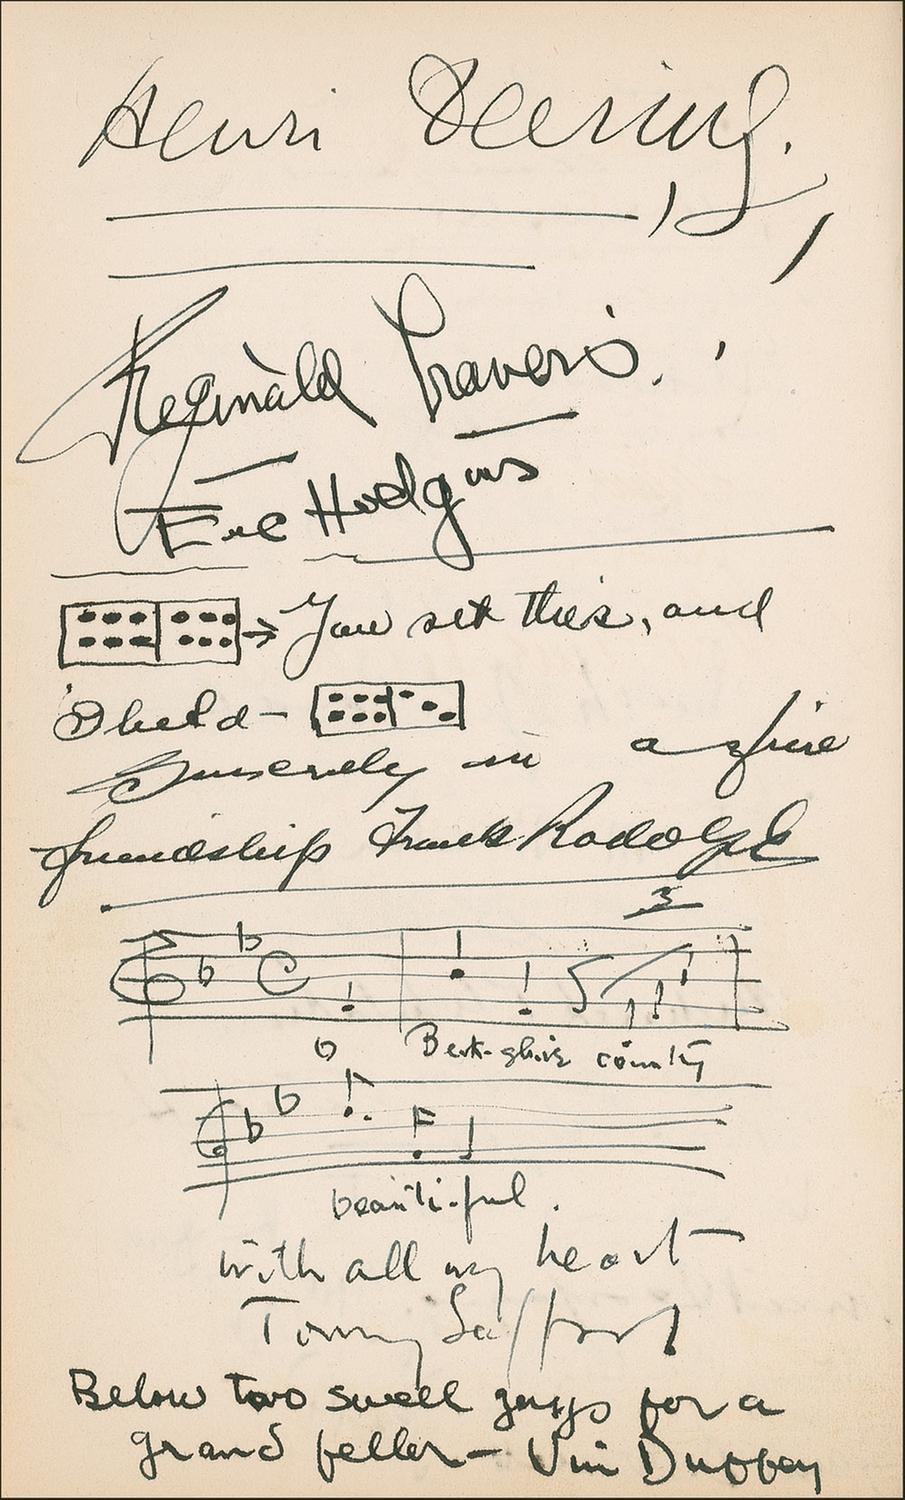 Henri Deering.
Reginald Travers.
Eric Hodgins
You set this, and
I held —
Sincerely in a fine
friendship Frank Rodolph
3
O Berk-shire coun-ty
beauti-ful.
with all my heart
Tommy Safford
Below two swell guys for a
grand feller — Vin Duffey